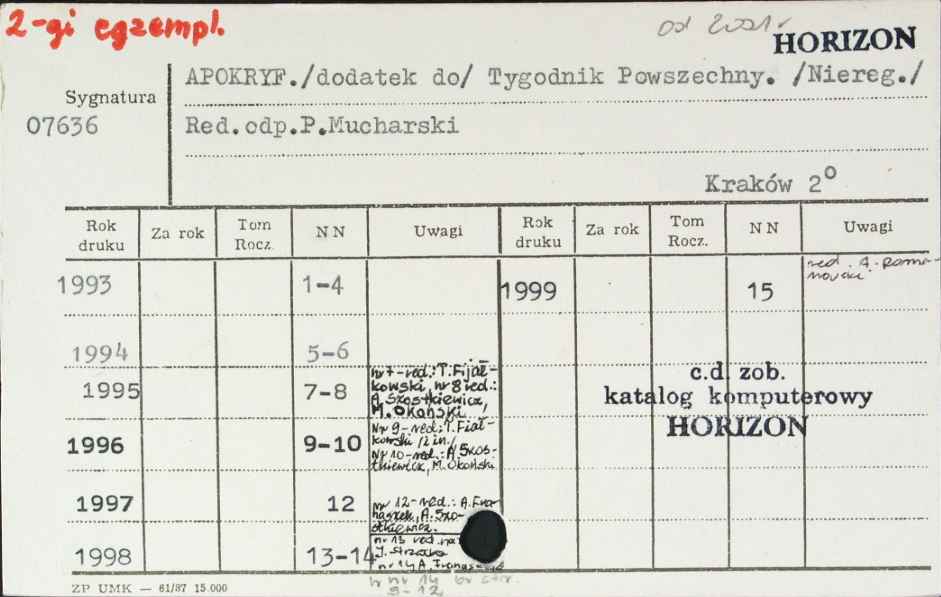 2-gi egzempl.
od 2001 r
HORIZON
APOKRYF./dodatek do/ Tygodnik Powszechny. /Niereg./
Sygnatura
07636
Red.odp.P.Mucharski
Kraków 2°
Rok druku Za rok Tom Rocz. NN Uwagi Rok druku Za rok Tom Rocz. NN Uwagi
1993 1-4 1999 15 red. A. Roma-
nowski
1994 5-6
1995 7-8 nr 7-red.: T. Fijał-
kowski, nr 8 red.:
A. Szostkiewicz,
M. Okoński
c.d. zob.
katalog komputerowy
HORIZON
1996 9-10 Nr 9-red.: T. Fiał-
kowski /i in./
Nr 10-red.: A. Szos-
tkiewicz, M. Okoński
1997 12 nr 12-red.: A. Fra-
naszek, A. Szo-
stkiewicz.
1998 13-14 nr 13 red.
J. Strzałka
nr 14 A. Franasz
w nr 14 br str.
9-12
ZP UMK — 61/87 15.000